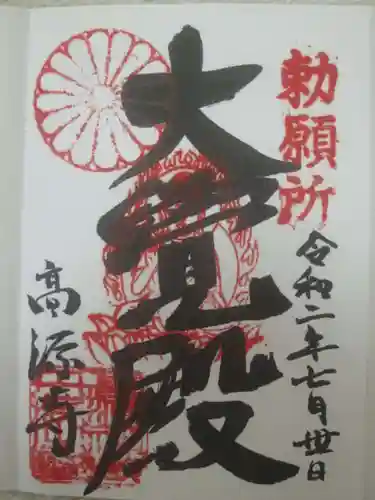 勅願所
令和二年七月卅日
大覺殿
高源寺